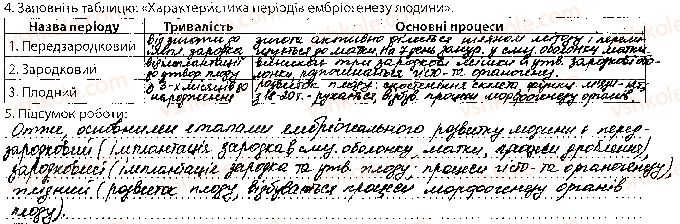 4. Заповніть таблицю: «Характеристика періодів ембріогенезу людини».
Назва періоду Тривалість Основні процеси
1. Передзародковий від зиготи до імпл. зародка зигота активно ділиться шляхом мітозу і переміщується до матки. На 7 день занур. у сл. оболонку матки.
2. Зародковий від імплантації до утвор. плоду виникають три зародкові листки й утв. зародкові оболонки, розпочинається гісто- та органогенез.
3. Плодний з 3-х місяців до народження розвиток плоду: скостеніння скелета, з 18-20т. - рухається, відбув. процеси морфогенезу органів.
5. Підсумок роботи:
Отже, основними етапами ембріонального розвитку людини є перед-
зародковий (імплантація зародка в сл. оболонку матки, процеси дроблення),
зародковий (імплантація зародка та утв. плоду, процеси гісто- та органогенезу),
плідний (розвиток плоду, відбуваються процеси морфогенезу органів
плоду).